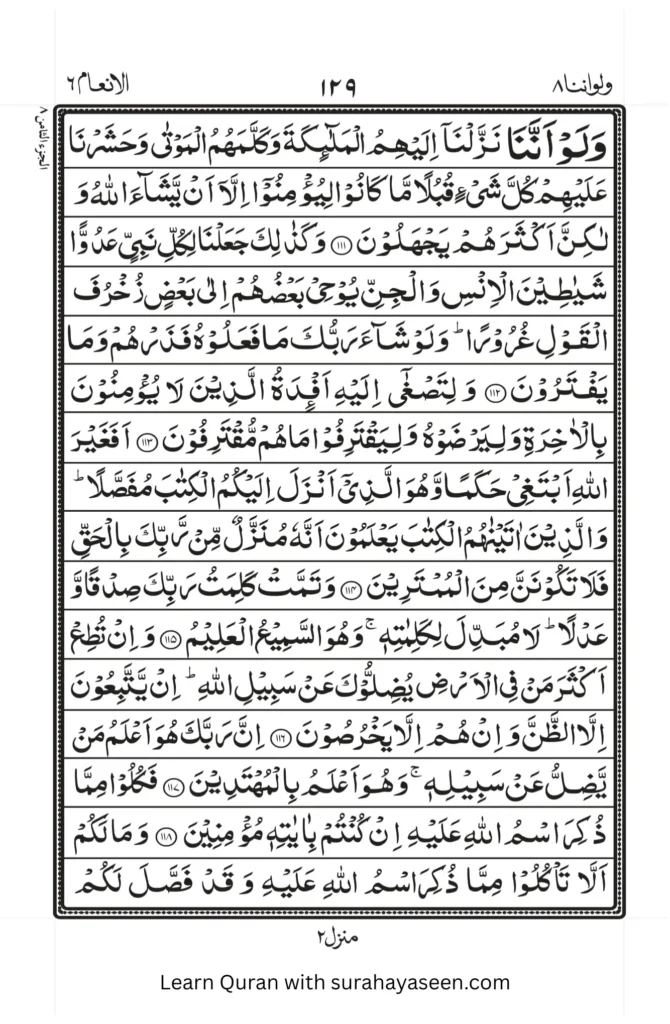 ولواننا ٨
١٢٩
الانعام ٦
الجزء الثامن ٨
وَلَوْ اَنَّنَا نَزَّلْنَاۤ اِلَيْهِمُ الْمَلٰٓئِكَةَ وَكَلَّمَهُمُ الْمَوْتٰى وَحَشَرْنَا
عَلَيْهِمْ كُلَّ شَیْءٍ قُبُلًا مَّا كَانُوْا لِيُؤْمِنُوْۤا اِلَّاۤ اَنْ يَّشَآءَ اللّٰهُ وَ
لٰكِنَّ اَكْثَرَهُمْ يَجْهَلُوْنَ ﴿١١١﴾ وَكَذٰلِكَ جَعَلْنَا لِكُلِّ نَبِيٍّ عَدُوًّا
شَيٰطِيْنَ الْاِنْسِ وَالْجِنِّ يُوْحِيْ بَعْضُهُمْ اِلٰى بَعْضٍ زُخْرُفَ
الْقَوْلِ غُرُوْرًا ؕ وَلَوْ شَآءَ رَبُّكَ مَا فَعَلُوْهُ فَذَرْهُمْ وَمَا
يَفْتَرُوْنَ ﴿١١٢﴾ وَلِتَصْغٰۤى اِلَيْهِ اَفْـِٕدَةُ الَّذِيْنَ لَا يُؤْمِنُوْنَ
بِالْاٰخِرَةِ وَلِيَرْضَوْهُ وَلِيَقْتَرِفُوْا مَا هُمْ مُّقْتَرِفُوْنَ ﴿١١٣﴾ اَفَغَيْرَ
اللّٰهِ اَبْتَغِيْ حَكَمًا وَّهُوَ الَّذِيْۤ اَنْزَلَ اِلَيْكُمُ الْكِتٰبَ مُفَصَّلًا ؕ
وَالَّذِيْنَ اٰتَيْنٰهُمُ الْكِتٰبَ يَعْلَمُوْنَ اَنَّهٗ مُنَزَّلٌ مِّنْ رَّبِّكَ بِالْحَقِّ
فَلَا تَكُوْنَنَّ مِنَ الْمُمْتَرِيْنَ ﴿١١٤﴾ وَتَمَّتْ كَلِمَتُ رَبِّكَ صِدْقًا وَّ
عَدْلًا ؕ لَا مُبَدِّلَ لِكَلِمٰتِهٖ ۚ وَهُوَ السَّمِيْعُ الْعَلِيْمُ ﴿١١٥﴾ وَاِنْ تُطِعْ
اَكْثَرَ مَنْ فِي الْاَرْضِ يُضِلُّوْكَ عَنْ سَبِيْلِ اللّٰهِ ؕ اِنْ يَّتَّبِعُوْنَ
اِلَّا الظَّنَّ وَاِنْ هُمْ اِلَّا يَخْرُصُوْنَ ﴿١١٦﴾ اِنَّ رَبَّكَ هُوَ اَعْلَمُ مَنْ
يَّضِلُّ عَنْ سَبِيْلِهٖ ۚ وَهُوَ اَعْلَمُ بِالْمُهْتَدِيْنَ ﴿١١٧﴾ فَكُلُوْا مِمَّا
ذُكِرَ اسْمُ اللّٰهِ عَلَيْهِ اِنْ كُنْتُمْ بِاٰيٰتِهٖ مُؤْمِنِيْنَ ﴿١١٨﴾ وَمَا لَكُمْ
اَلَّا تَاْكُلُوْا مِمَّا ذُكِرَ اسْمُ اللّٰهِ عَلَيْهِ وَقَدْ فَصَّلَ لَكُمْ
منزل ٢
Learn Quran with surahayaseen.com